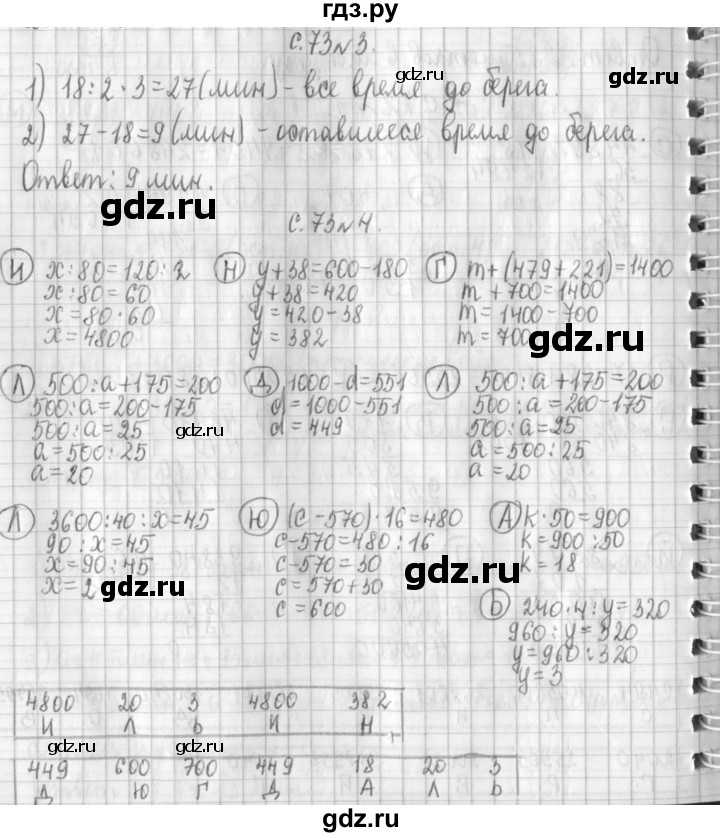 гдз.ру
с.73 №3.
1) 18:2·3=27(мин)-все время до берега.
2) 27-18=9(мин)-оставшееся время до берега.
Ответ: 9 мин.
с.73 №4.
И x:80=120:2
x:80=60
x=80·60
x=4800
Н y+38=600-180
y+38=420
y=420-38
y=382
Г m+(479+221)=1400
m+700=1400
m=1400-700
m=700
Л 500:a+175=200
500:a=200-175
500:a=25
a=500:25
a=20
Д 1000-d=551
d=1000-551
d=449
Л 500:a+175=200
500:a=200-175
500:a=25
a=500:25
a=20
Л 3600:40:x=45
90:x=45
x=90:45
x=2
Ю (c-570)·16=480
c-570=480:16
c-570=30
c=570+30
c=600
А k·50=900
k=900:50
k=18
Ь 240·4:y=320
960:y=320
y=960:320
y=3
4800 20 3 4800 382
И Л Ь И Н
449 600 700 449 18 20 3
Д Ю Г Д А Л Ь
gdz.ru
gdz.ru
gdz.ru
gdz.ru
gdz.ru
gdz.ru
gdz.ru
gdz.ru
gdz.ru
gdz.ru
gdz.ru